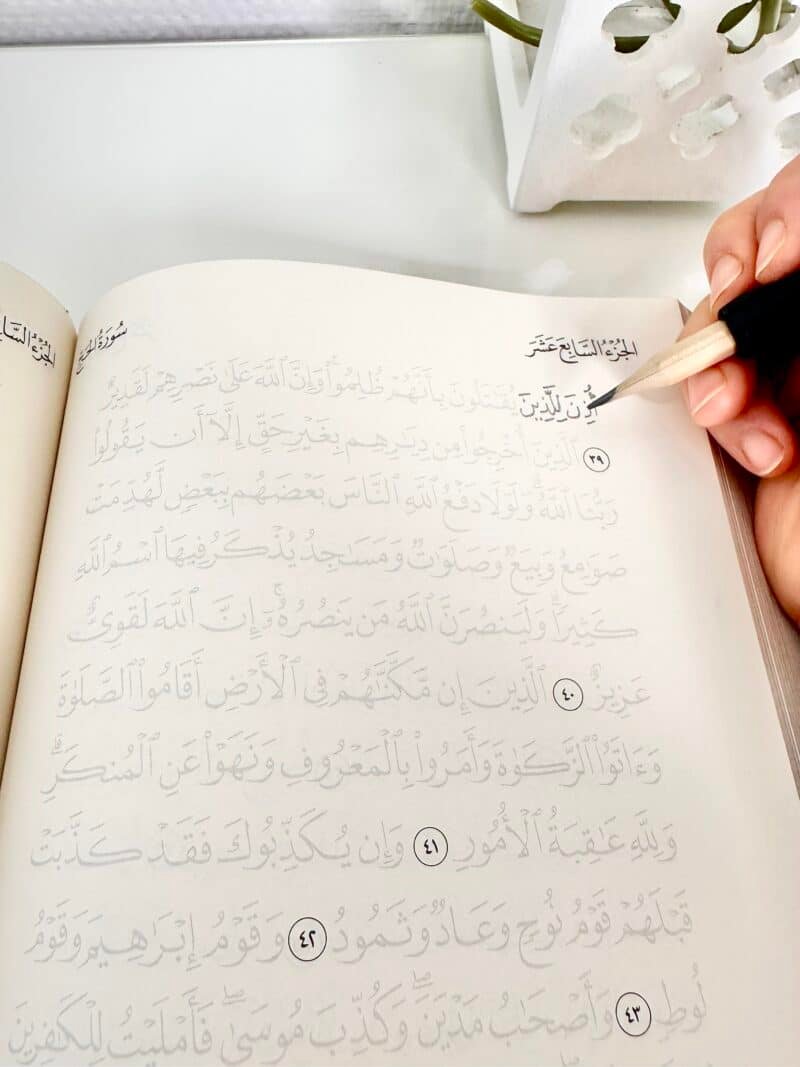 الجُزْءُ السَّا
سُورَةُ الحَجِّ
الجُزْءُ السَّابِعَ عَشَرَ
أُذِنَ لِلَّذِينَ يُقَٰتَلُونَ بِأَنَّهُمْ ظُلِمُوا۟ ۚ وَإِنَّ ٱللَّهَ عَلَىٰ نَصْرِهِمْ لَقَدِيرٌ
٣٩ ٱلَّذِينَ أُخْرِجُوا۟ مِن دِيَٰرِهِم بِغَيْرِ حَقٍّ إِلَّآ أَن يَقُولُوا۟
رَبُّنَا ٱللَّهُ ۗ وَلَوْلَا دَفْعُ ٱللَّهِ ٱلنَّاسَ بَعْضَهُم بِبَعْضٍ لَّهُدِّمَتْ
صَوَٰمِعُ وَبِيَعٌ وَصَلَوَٰتٌ وَمَسَٰجِدُ يُذْكَرُ فِيهَا ٱسْمُ ٱللَّهِ
كَثِيرًا ۗ وَلَيَنصُرَنَّ ٱللَّهُ مَن يَنصُرُهُۥٓ ۗ إِنَّ ٱللَّهَ لَقَوِىٌّ
عَزِيزٌ ٤٠ ٱلَّذِينَ إِن مَّكَّنَّٰهُمْ فِى ٱلْأَرْضِ أَقَامُوا۟ ٱلصَّلَوٰةَ
وَءَاتَوُا۟ ٱلزَّكَوٰةَ وَأَمَرُوا۟ بِٱلْمَعْرُوفِ وَنَهَوْا۟ عَنِ ٱلْمُنكَرِ ۗ
وَلِلَّهِ عَٰقِبَةُ ٱلْأُمُورِ ٤١ وَإِن يُكَذِّبُوكَ فَقَدْ كَذَّبَتْ
قَبْلَهُمْ قَوْمُ نُوحٍ وَعَادٌ وَثَمُودُ ٤٢ وَقَوْمُ إِبْرَٰهِيمَ وَقَوْمُ
لُوطٍ ٤٣ وَأَصْحَٰبُ مَدْيَنَ ۖ وَكُذِّبَ مُوسَىٰ ۖ فَأَمْلَيْتُ لِلْكَٰفِرِينَ